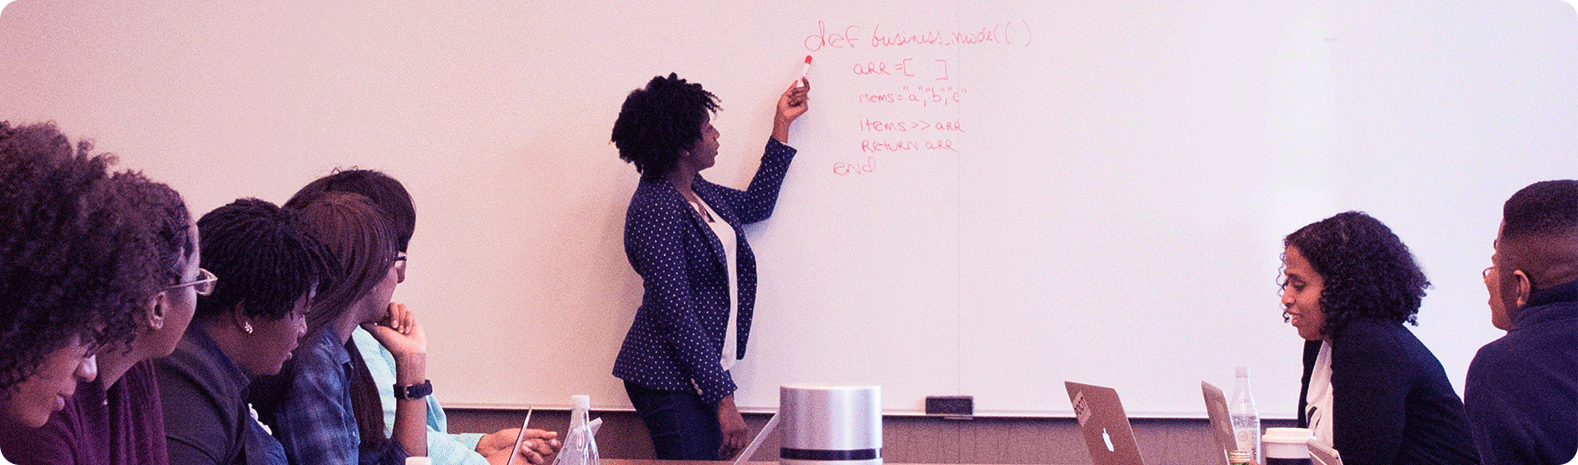 def business_model( )
arr = [ ]
items = "a", "b", "c"
items >> arr
return arr
end